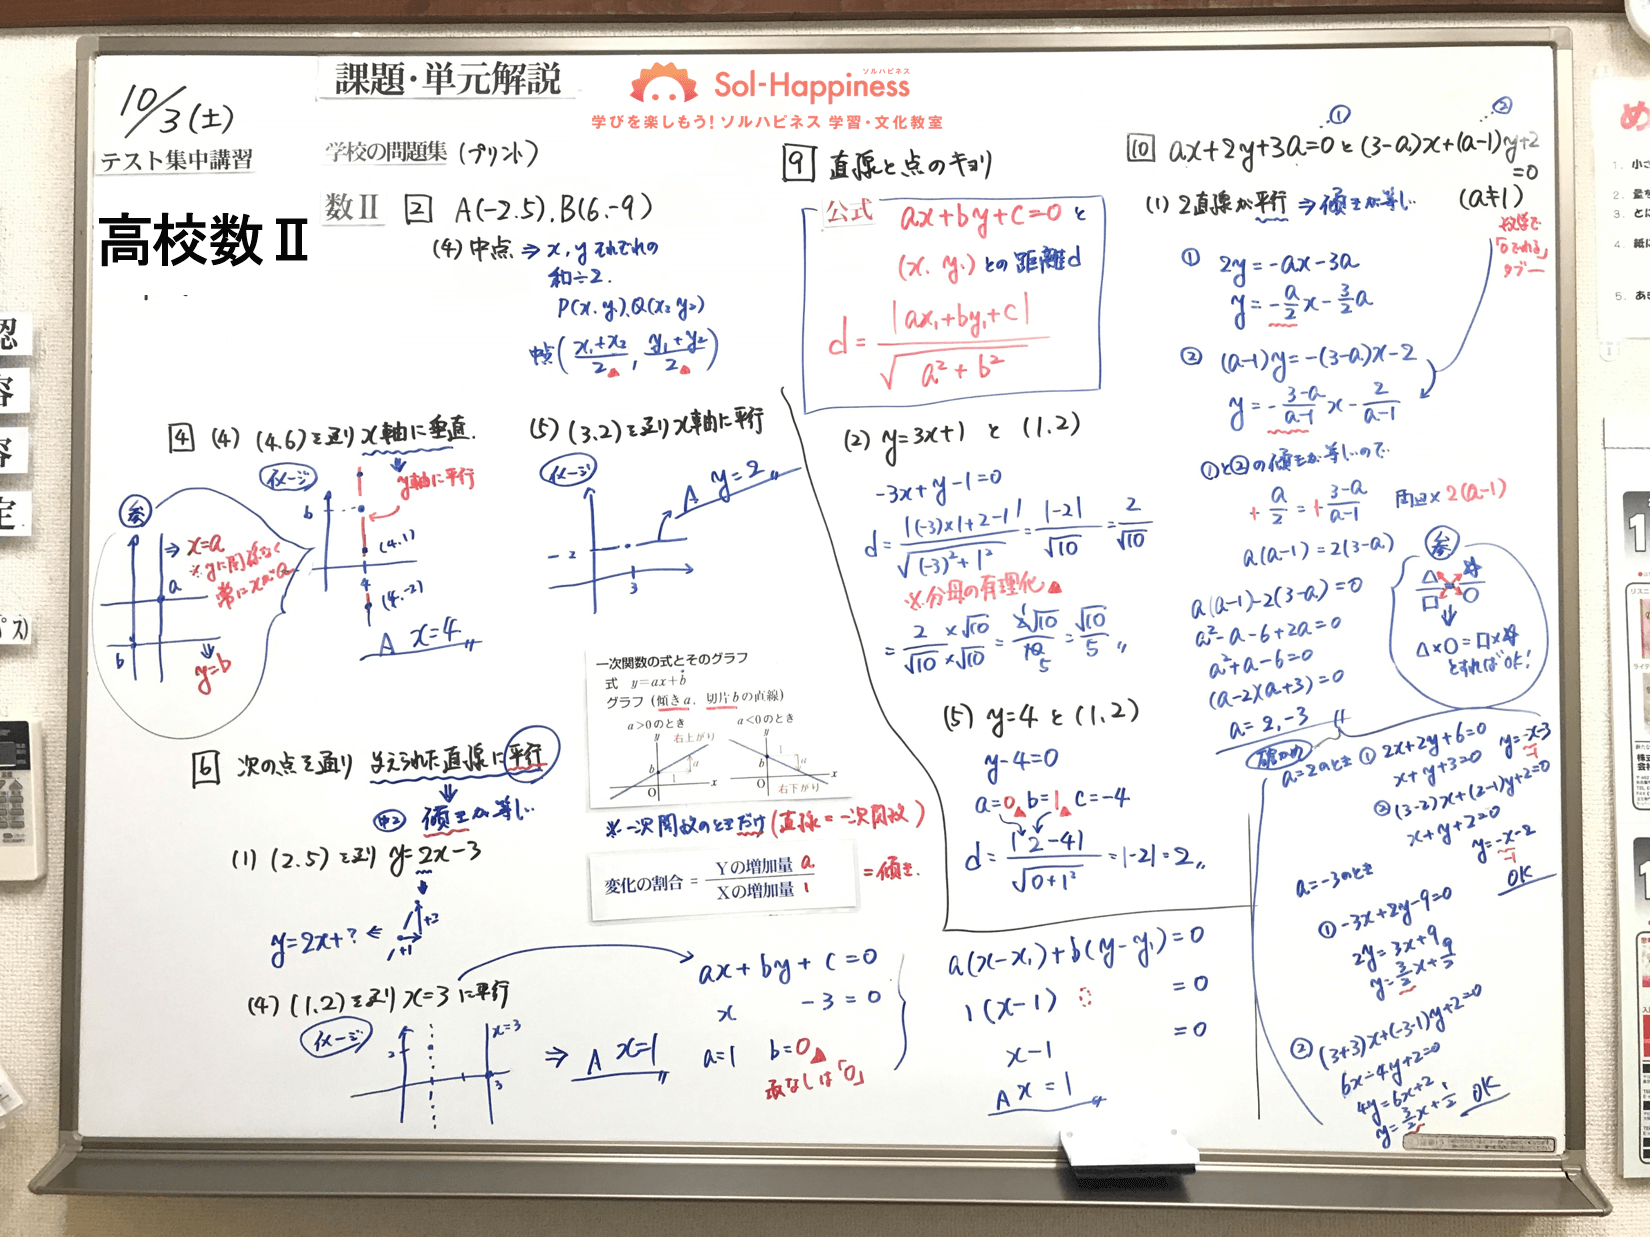 10/3(土)
テスト集中講習
高校数Ⅱ
課題・単元解説
ソルハピネス
Sol-Happiness
学びを楽しもう! ソルハピネス 学習・文化教室
学校の問題集 (プリント)
数Ⅱ 2 A(-2.5), B(6,-9)
(4) 中点 ⇒ x, y それぞれの
和÷2.
P(x, y₁), Q(x₂ y₂)
中点(x₁+x₂/2, y₁+y₂/2)
4 (4) (4.6)を通り x軸に垂直.
イメージ
y軸に平行
b
(4,1)
4
(4,-2)
A x=4
参
⇒ x=a
※yに関係なく
常にxがa
a
b
y=b
(5) (3.2)を通りx軸に平行
イメージ
A y=2
2
3
6 次の点を通り 与えられた直線に平行
中2 傾きが等しい
(1) (2.5)を通り y=2x-3
+2
+1
y=2x+? ⇐
(4) (1.2)を通り x=3に平行
イメージ
2
x=3
3
⇒ A x=1
ax+by+c=0
x -3=0
a=1 b=0
yなしは「0」
一次関数の式とそのグラフ
式 y=ax+b
グラフ (傾きa, 切片bの直線)
a>0のとき a<0のとき
右上がり
右下がり
※一次関数のときだけ(直線=一次関数)
変化の割合 = Yの増加量 a / Xの増加量 1 = 傾き.
9 直線と点のキョリ
公式 ax+by+c=0と
(x, y₁)との距離d
d=|ax₁+by₁+c|/√a²+b²
(2) y=3x+1 と (1.2)
-3x+y-1=0
d=|(-3)×1+2-1|/√(-3)²+1²=|-2|/√10=2/√10
※分母の有理化
=2×√10/√10×√10=2√10/10=√10/5
1
5
(5) y=4と(1.2)
y-4=0
a=0 b=1 c=-4
d=|2-4|/√0+1²=|-2|=2
a(x-x₁)+b(y-y₁)=0
1(x-1) 0 =0
=0
x-1
A x=1
① ②
10 ax+2y+3a=0と(3-a)x+(a-1)y+2
=0
(1) 2直線が平行⇒傾きが等しい (a≠1)
文字で
「0でわる」
タブー
① 2y=-ax-3a
y=-a/2x-3/2a
② (a-1)y=-(3-a)x-2
y=-3-a/a-1 x-2/a-1
①と②の傾きが等しいので
+a/2=+3-a/a-1 両辺×2(a-1)
a(a-1)=2(3-a)
a(a-1)-2(3-a)=0
a²-a-6+2a=0
a²+a-6=0
(a-2)(a+3)=0
a=2,-3
参
△/□=☆/○
△×○=□×☆
とすればOK!
確かめ
a=2のとき ① 2x+2y+6=0
x+y+3=0 y=-x-3
-1
② (3-2)x+(2-1)y+2=0
x+y+2=0
y=-x-2
-1
OK
a=-3のとき
① -3x+2y-9=0
2y=3x+9
y=3/2x+9/2
② (3+3)x+(-3-1)y+2=0
6x-4y+2=0
4y=6x+2
y=3/2x+1/2
OK
認
容
容
定
ペス)
め
1. 小さ
2. 量を
3. とに
4. 紙に
5. あき